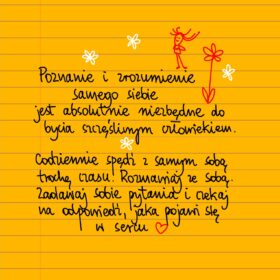 Poznanie i zrozumienie
samego siebie
jest absolutnie niezbędne do
bycia szczęśliwym człowiekiem.
Codziennie spędź z samym sobą
trochę czasu! Rozmawiaj ze sobą.
Zadawaj sobie pytania i czekaj
na odpowiedź, jaka pojawi się
w sercu